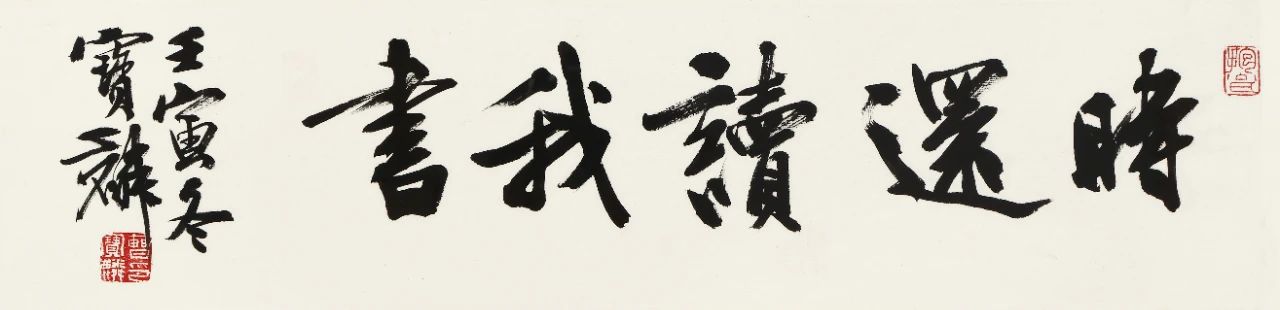 時還讀我書
壬寅冬
寶麟